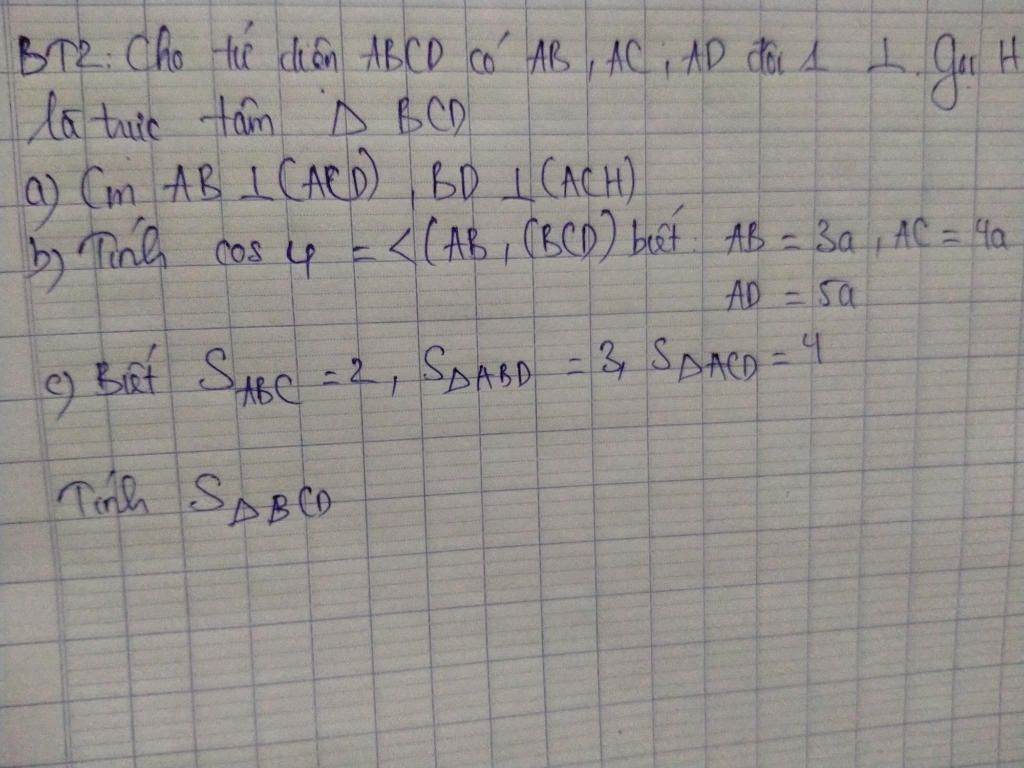 BT2: Cho tứ diện ABCD có AB, AC, AD đôi 1 ⊥. Gọi H
là trực tâm Δ BCD
a) Cm AB ⊥ (ACD), BD ⊥ (ACH)
b) Tính cos φ = <(AB, (BCD) biết: AB = 3a, AC = 4a
AD = 5a
c) Biết S_ABC = 2, S_ΔABD = 3, S_ΔACD = 4
Tính S_ΔBCD